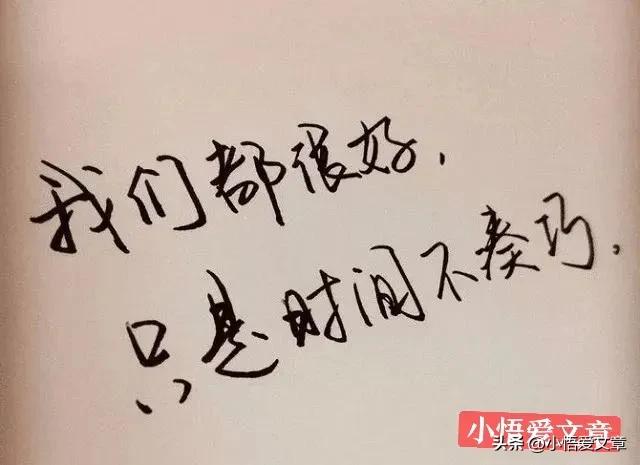 我们都很好.
只是时间不凑巧.
小悟爱文章
头条 @小悟爱文章